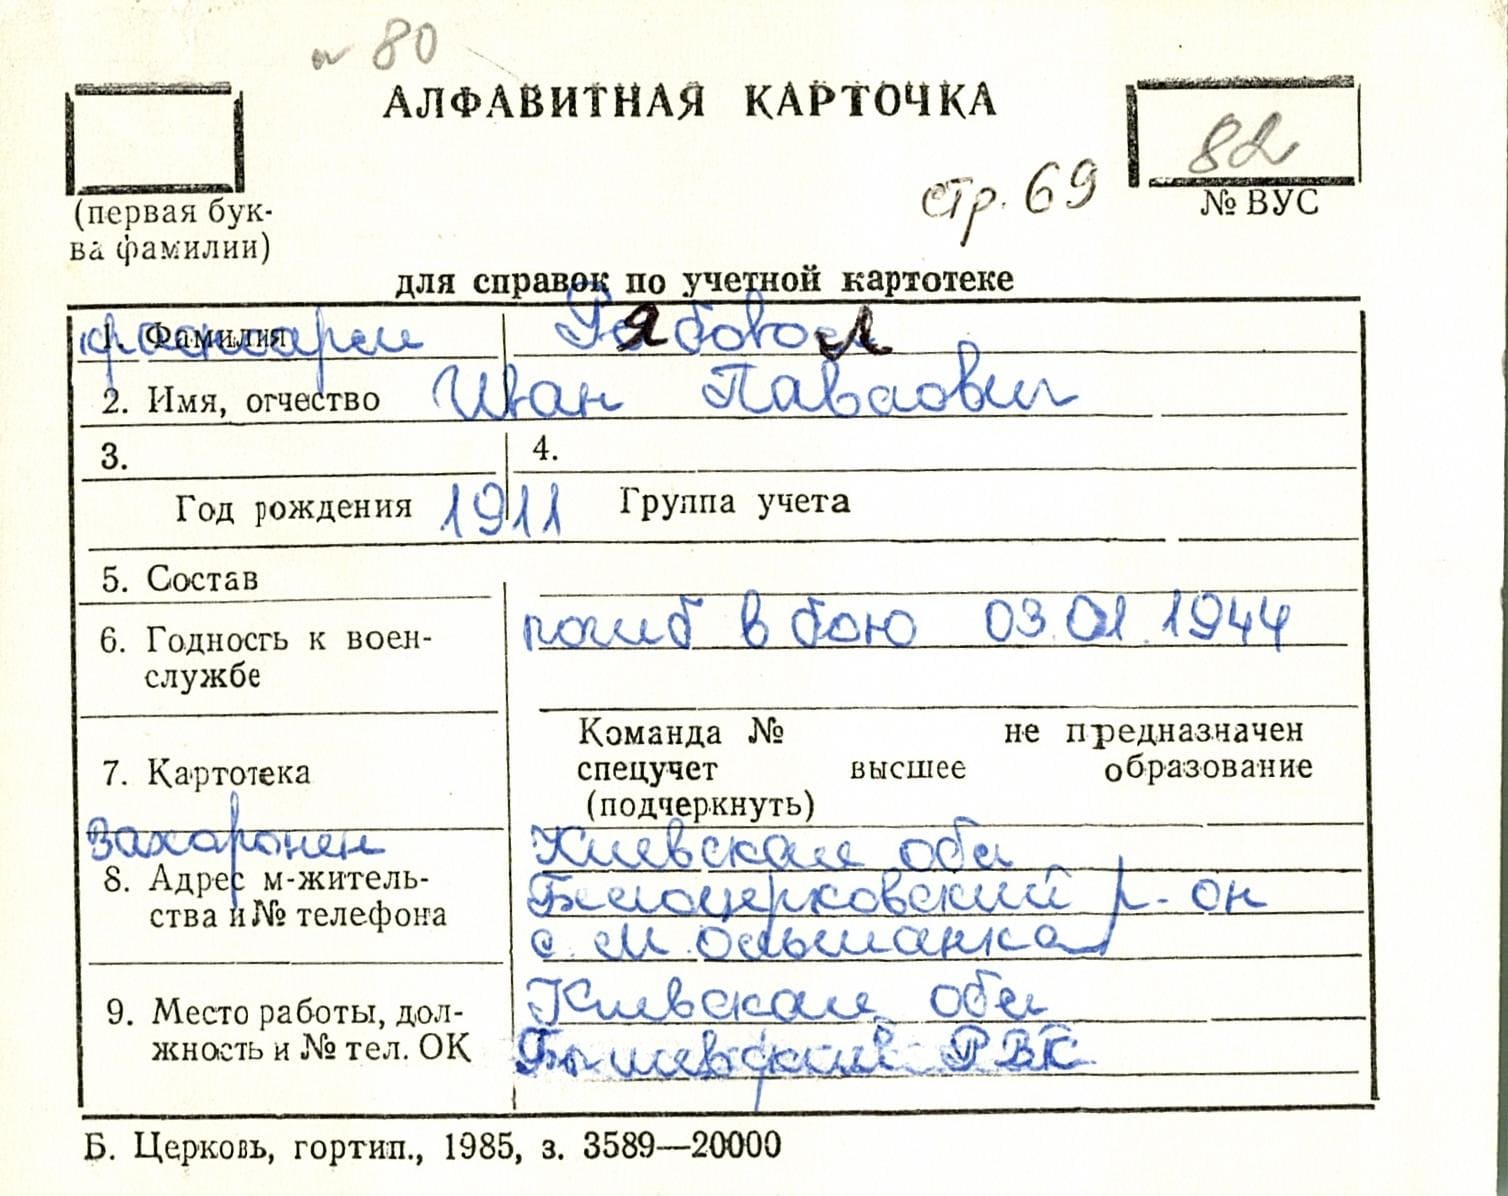 80
АЛФАВИТНАЯ КАРТОЧКА
82
стр. 69
№ ВУС
(первая бук-
ва фамилии)
для справок по учетной картотеке
1. Фамилия Рябовол
2. Имя, отчество Иван Павлович
3. 4.
Год рождения 1911 Группа учета
5. Состав
погиб в бою 03.01.1944
6. Годность к воен-
службе
Команда № не предназначен
7. Картотека спецучет высшее образование
(подчеркнуть)
Захоронен Киевская обл
8. Адрес м-житель- Белоцерковский р-он
ства и № телефона с. М. Ольшанка
9. Место работы, дол- Киевская обл
жность и № тел. ОК РВК
Б. Церковь, гортип., 1985, з. 3589—20000